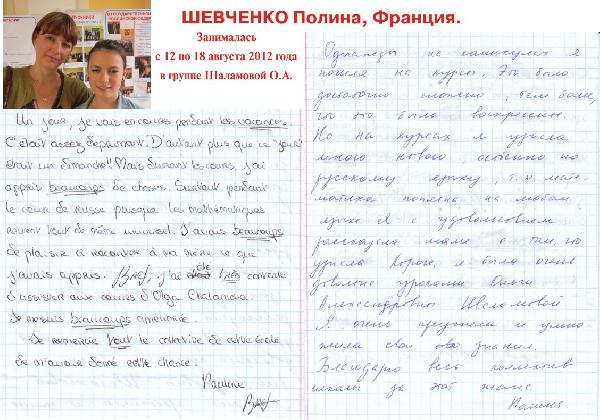 ШЕВЧЕНКО Полина, Франция.
Занималась
с 12 по 18 августа 2012 года
в группе Шаламовой О.А.
Un jour, je vais en cours pendant les vacances.
C'était assez déparimant. D'autant plus que ce "jour"
était un dimanche! Mais durant les cours, j'ai
appris beaucoups de choses. Surtout pendant
le cour de russe puisque les mathématiques
restent tout de même universel. J'avais beaucoups
de plaisir à raconter à ma mère ce que
j'avais appris. Bref, j'ai été très contente
d'assister aux cours d'Olga Chalamova.
Je me suis beaucoups améliorée.
Je remercie tout le collective de cette école
de m'avoir donné cette chance.
Pauline
Bref
Однажды на каникулах я
пошла на курсы. Это было
достаточно сложно, тем более,
что это было воскресенье.
Но на курсах я узнала
много нового, особенно по
русскому языку, т.к. мате-
матика понятна на любом
языке Я с удовольствием
рассказала маме о том, что
узнала Короче, я была очень
довольна уроками Ольги
Александровны Шаламовой
Я очень преуспела и умно-
жила свои знания.
Благодарю весь коллектив
школы за этот
Полина